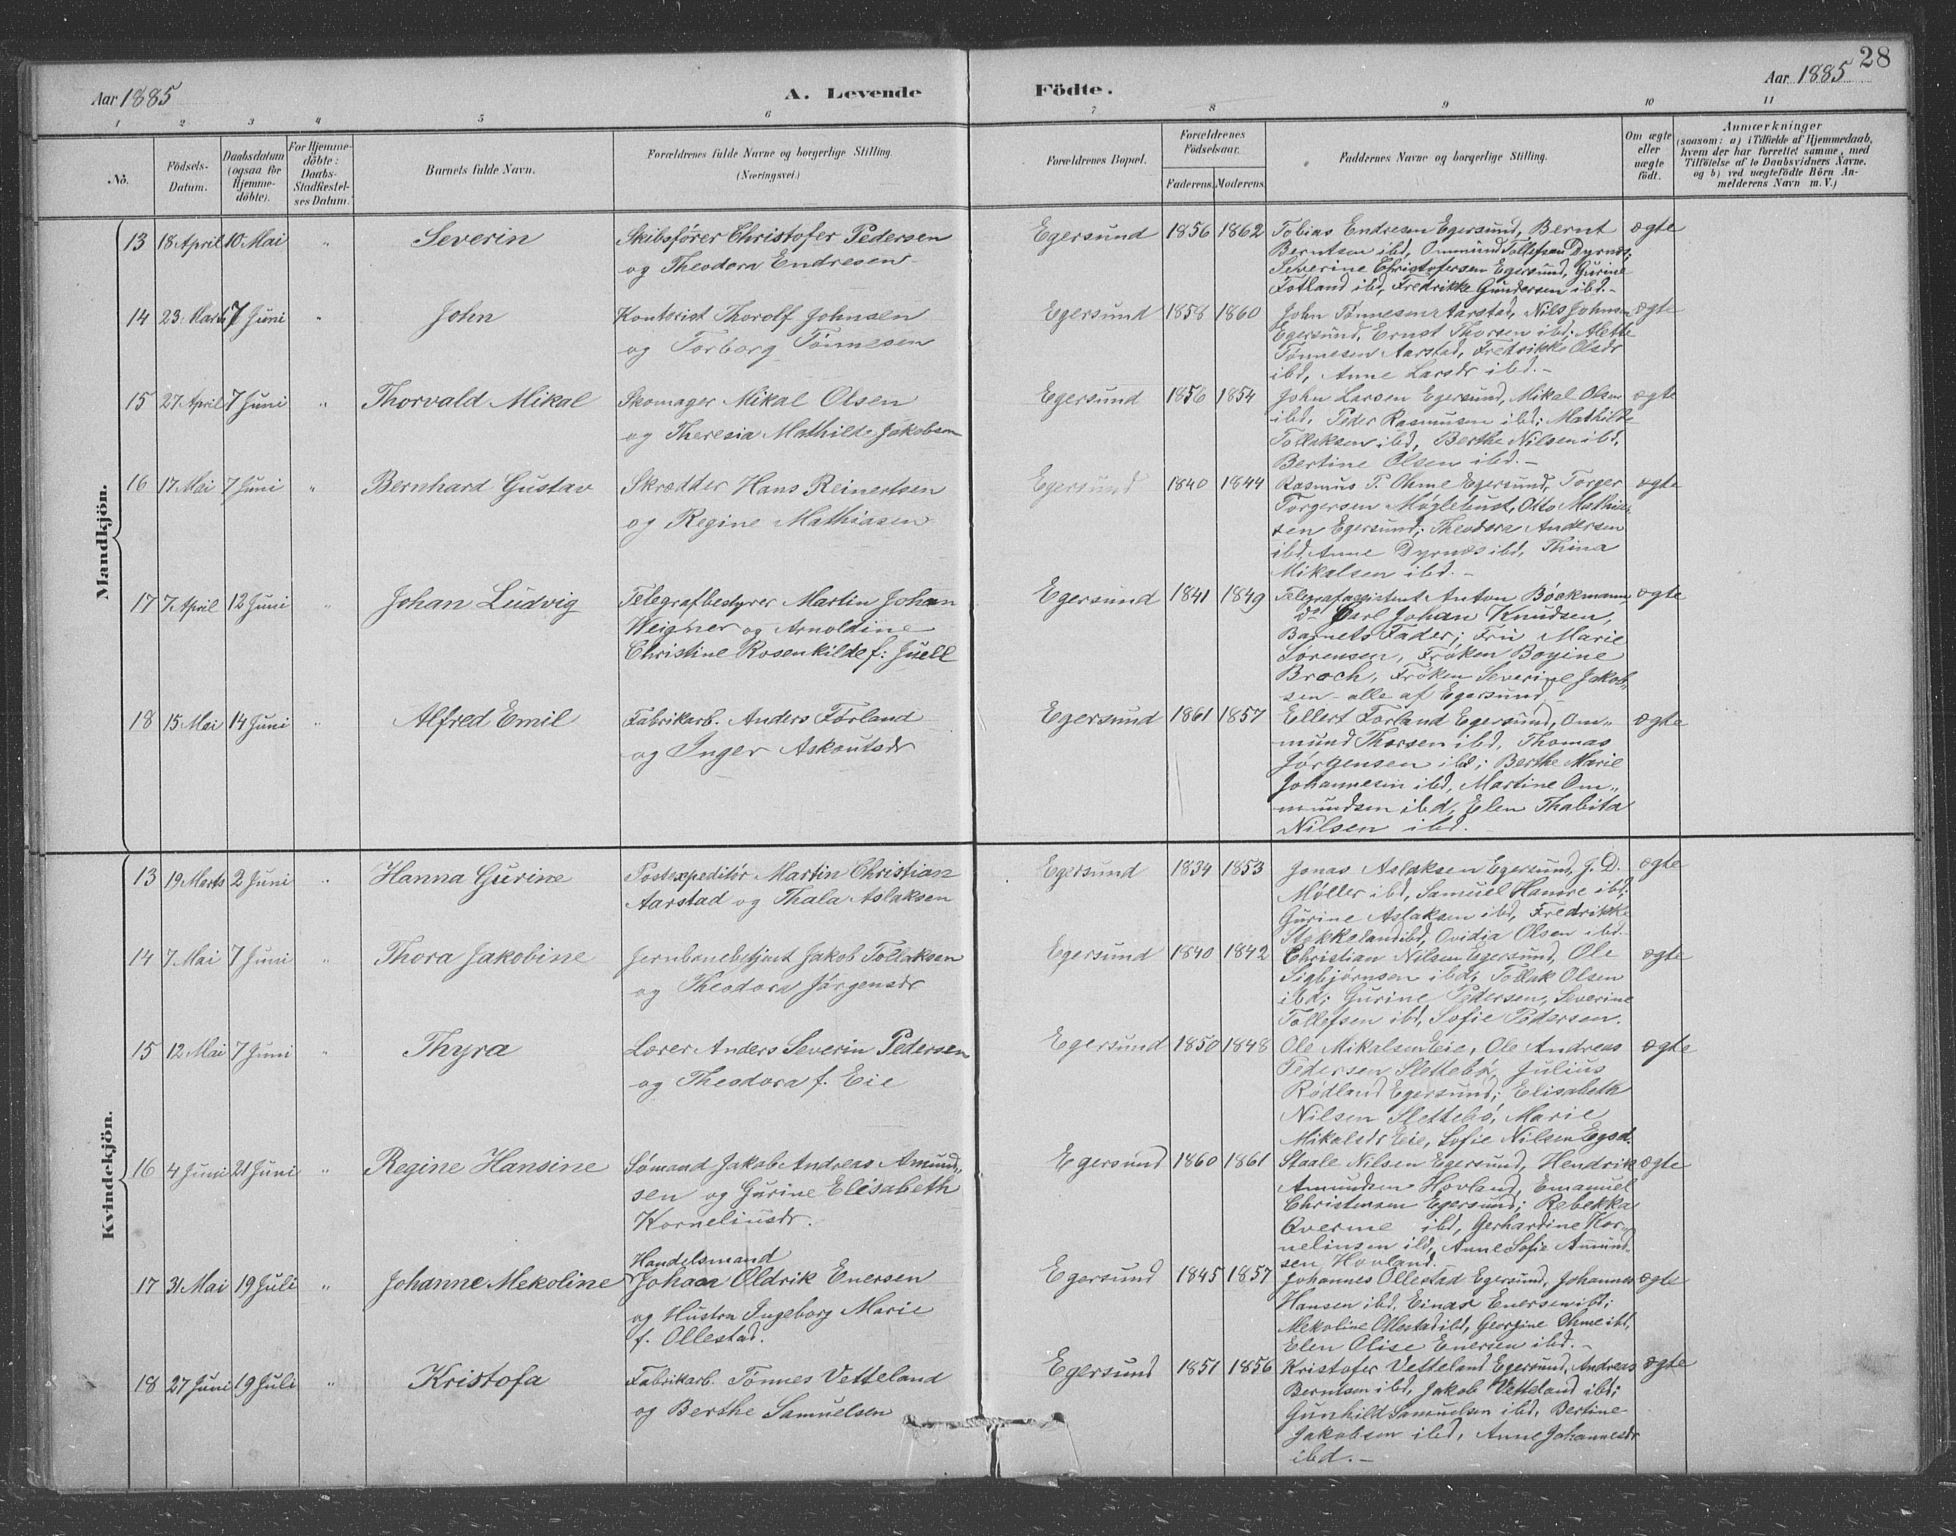 28
Aar 1885
A. Levende Fødte.
Aar 1885
1 2 3 4 5 6 7 8 9 10 11
No.
Födsels-
Datum.
Daabsdatum
(ogsaa for
Hjemme-
döbte).
For Hjemme-
döbte:
Daabs-
Stadfæstel-
ses Datum.
Barnets fulde Navn.
Forældrenes fulde Navne og borgerlige Stilling.
(Næringsvei.)
Forældrenes Bopæl.
Forældrenes
Födselsaar.
Faderens. Moderens.
Faddernes Navne og borgerlige Stilling.
Om ægte
eller
uægte
födt.
Anmærkninger
(saasom: a) i Tilfælde af Hjemmedaab,
hvem der har forrettet samme, med
Tilföielse af to Daabsvidners Navne.
og b) ved uægtefödte Börn An-
melderens Navn m. V.)
Mandkjön.
13 18 April 10 Mai " Severin
Skibsfører Christofer Pedersen
og Theodora Endresen
Egersund 1856 1862
Tobias Endresen Egersund, Bernt
Berntsen ibd, Ommund Tollefsen Dyrnæs,
Severine Christofersen Egersund, Gurine
Fotland ibd, Fredrikke Gundersen ibd.-
ægte
14 23 Marts 7 Juni " John
Kontorist Thorolf Johnsen
og Torborg Tønnesen
Egersund 1858 1860
John Tønnesen Aarstad, Nils Johnsen
Egersund, Ernst Thorsen ibd; Alette
Tønnesen Aarstad, Fredrikke Olsdr
ibd, Anne Larsdr ibd.-
ægte
15 27 April 7 Juni " Thorvald Mikal
Skomager Mikal Olsen
og Theresia Mathilde Jakobsen
Egersund 1856 1854
John Larsen Egersund, Mikal Olsen
ibd, Peder Rasmusen ibd; Mathilde
Tollaksen ibd, Berthe Nilsen ibd,
Bertine Olsen ibd.-
ægte
16 17 Mai 7 Juni " Bernhard Gustav
Skrædder Hans Reinertsen
og Regine Mathiasen
Egersund 1840 1844
Rasmus T. Ohme Egersund, Torger
Torgersen Møglebust, Otto Mathia-
sen Egersund; Theodora Andersen
ibd, Anne Dyrnæs ibd, Thina
Mikalsen ibd.-
ægte
17 7 April 12 Juni " Johan Ludvig
Telegrafbestyrer Martin Johan
Weigner og Arnoldine
Christine Rosenkilde f: Juell
Egersund 1841 1849
Telegrafassistent Anton Bøckmann,
do Carl Johan Knudsen,
Barnets Fader; Fru Marie
Sørensen, Frøken Boyine
Broch, Frøken Severine Jakob-
sen - alle af Egersund
ægte
18 15 Mai 14 Juni " Alfred Emil
Fabrikarb. Anders Førland
og Inger Askoutsdr
Egersund 1861 1857
Ellert Førland Egersund, Om-
mund Thorsen ibd, Thomas
Jørgensen ibd; Berthe Marie
Johannesen ibd, Martine Om-
mundsen ibd, Elen Thabita
Nilsen ibd.
ægte
Kvindekjön.
13 19 Marts 2 Juni " Hanna Gurine
Postexpeditør Martin Christian
Aarstad og Thala Aslaksen
Egersund 1834 1853
Jonas Aslaksen Egersund, J. D.
Møller ibd, Samuel Hamre ibd;
Gurine Aslaksen ibd, Fredrikke
Stokkeland ibd, Ovidia Olsen ibd.
ægte
14 7 Mai 7 Juni " Thora Jakobine
Jernbanebetjent Jakob Tollaksen
og Theodora Jørgensdr
Egersund 1840 1842
Christian Nilsen Egersund, Ole
Sigbjørnsen ibd, Tollak Olsen
ibd; Gurine Pedersen, Severine
Tollefsen ibd, Sofie Pedersen.
ægte
15 12 Mai 7 Juni " Thyra
Lærer Anders Severin Pedersen
og Theodora f. Eie
Egersund 1850 1848
Ole Mikalsen Eie, Ole Andreas
Pedersen Slettebø, Julius
Rødland Egersund; Elisabeth
Nilsen Slettebø, Marie
Mikalsdr Eie, Sofie Nilsen Egsd.
ægte
16 4 Juni 21 Juni " Regine Hansine
Sømand Jakob Andreas Amund-
sen og Gurine Elisabeth
Korneliusdr.
Egersund 1860 1861
Staale Nilsen Egersund, Hendrik
Amundsen Hovland, Emanuel
Christensen Egersund; Rebekka
Qverme ibd, Gerhardine Kor-
neliusen ibd, Anne Sofie Amund-
sen Hovland.
ægte
17 31 Mai 19 Juli " Johanne Mekoline
Handelsmand
Johan Oldrik Enersen
og Hustru Ingeborg Marie
f. Ollestad.
Egersund 1845 1857
Johannes Ollestad Egersund, Johannes
Hansen ibd, Einar Enersen ibd;
Mekoline Ollestad ibd, Georgine Ohme ibd,
Elen Olise Enersen ibd.-
ægte
18 27 Juni 19 Juli " Kristofa
Fabrikarb. Tønnes Vetteland
og Berthe Samuelsen
Egersund 1851 1856
Kristofer Vetteland Egersund, Andreas
Berntsen ibd, Jakob Vetteland ibd;
Gunhild Samuelsen ibd, Bertine
Jakobsen ibd, Anne Johannesdr
ibd.-
ægte